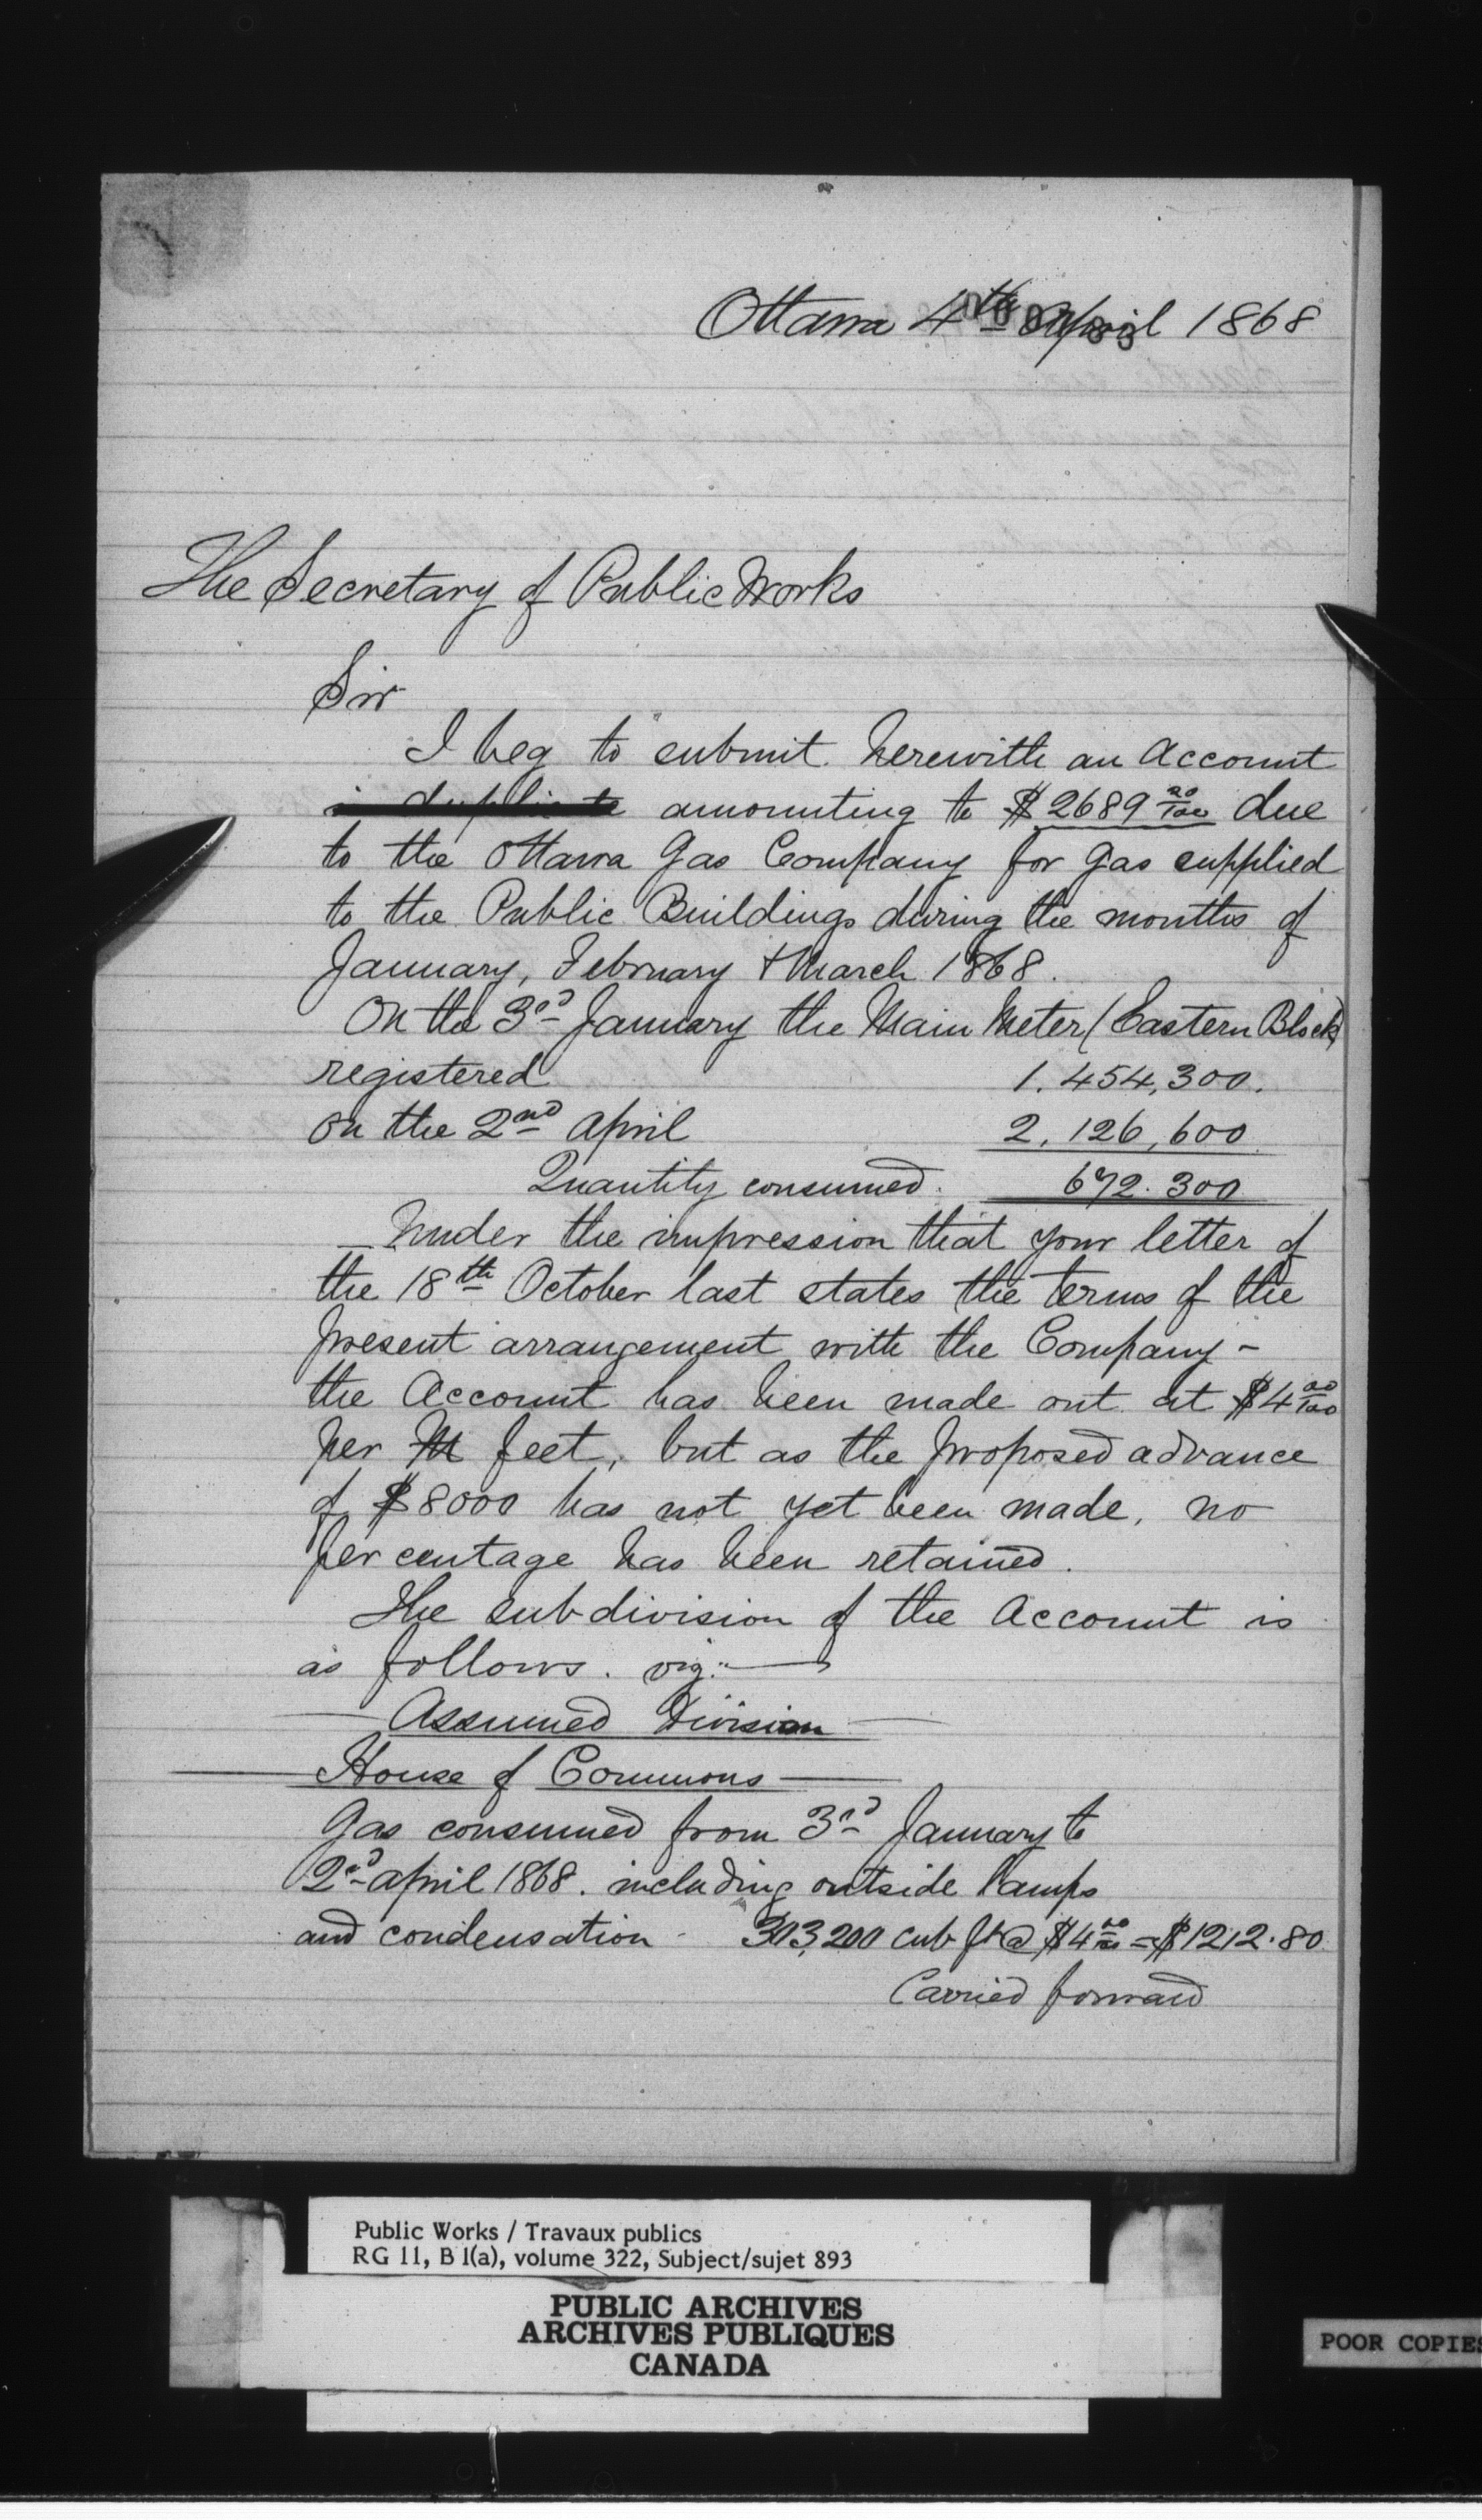 Ottawa 4th April 1868
The Secretary of Public Works
Sir
I beg to submit herewith an Account
in duplicate amounting to $2689 20/100 due
to the Ottawa Gas Company for gas supplied
to the Public Buildings during the months of
January, February & March 1868.
On the 3rd January the Main Meter (Eastern Block)
registered 1.454,300.
on the 2nd April 2,126,600
Quantity consumed. 672.300
Under the impression that your letter of
the 18th October last states the terms of the
present arrangement with the Company -
the Account has been made out at $4 00/100
per M feet, but as the proposed advance
of $8000 has not yet been made, no
per centage has been retained.
The subdivision of the Account is
as follows. viz:—
Assumed Division
House of Commons
Gas consumed from 3rd January to
2nd April 1868. including outside lamps
and condensation - 303,200 cub ft @ $4 00/100 = $1212.80
Carried forward
Public Works / Travaux publics
RG 11, B 1(a), volume 322, Subject/sujet 893
PUBLIC ARCHIVES
ARCHIVES PUBLIQUES
CANADA
POOR COPIES